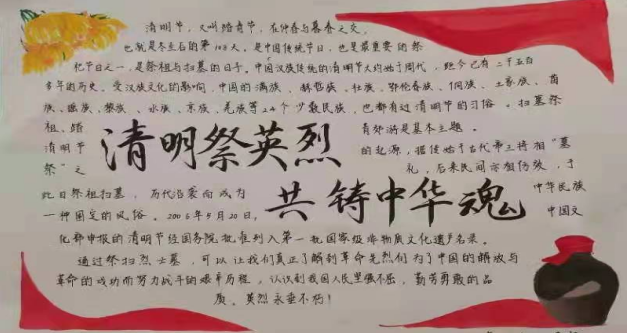 清明节，又叫踏青节，在仲春与暮春之交，
也就是冬至后的第108天，是中国传统节日，也是最重要的祭
祀节日之一，是祭祖与扫墓的日子。中国汉族传统的清明节大约始于周代，距今已有二千五百
多年的历史。受汉族文化的影响，中国的满族、赫哲族、壮族、鄂伦春族、侗族、土家族、苗
族、瑶族、黎族、水族、京族、羌族等24个少数民族，也都有过清明节的习俗。扫墓祭
祖、踏 青郊游是基本主题。
清明节 的起源，据传始于古代帝王将相"墓
祭"之 礼，后来民间亦相仿效，于
清明祭英烈
此日祭祖扫墓，历代沿袭而成为 中华民族
一种固定的风俗。2006年5月20日， 中国文
共铸中华魂
化部申报的清明节经国务院批准列入第一批国家级非物质文化遗产名录。
通过祭扫烈士墓，可以让我们真正了解到革命先烈们为了中国的解放与
革命的成功而努力战斗的艰辛历程，认识到我国人民坚强不屈，勤劳勇敢的品
质。英烈永垂不朽！